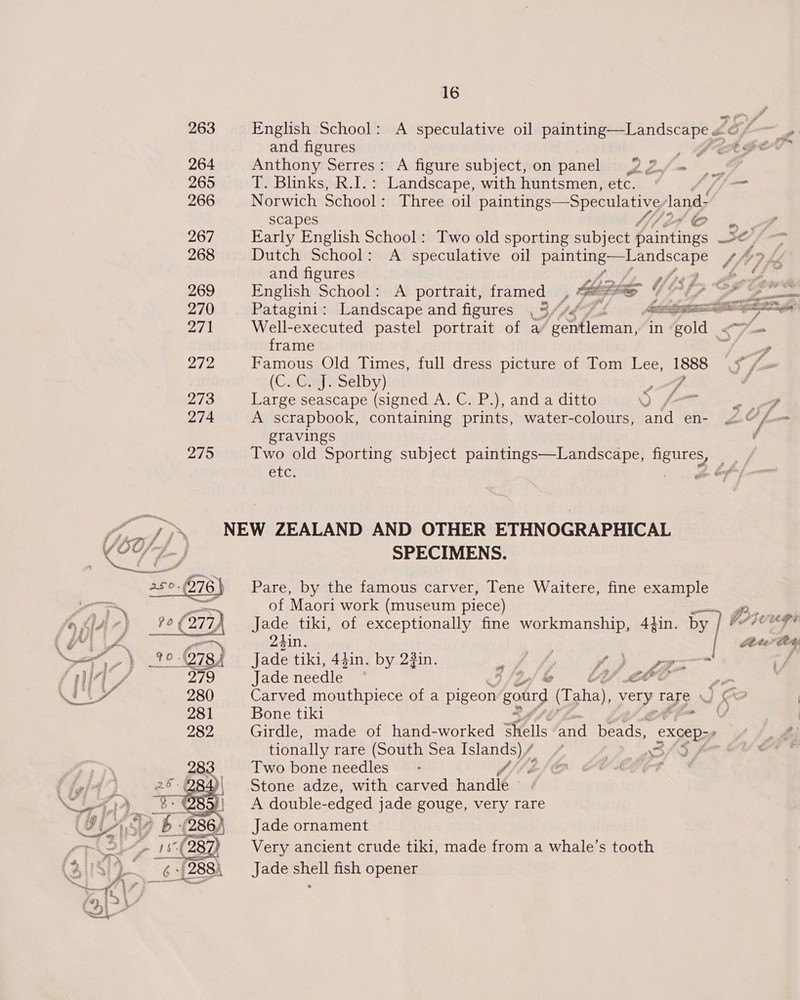 16
263 English School: A speculative oil painting—Landscape
and figures
264 Anthony Serres: A figure subject, on panel 22/-
265 T. Blinks, R.I.: Landscape, with huntsmen, etc.
266 Norwich School: Three oil paintings—Speculative land-
scapes
267 Early English School: Two old sporting subject paintings
268 Dutch School: A speculative oil painting—Landscape
and figures
269 English School: A portrait, framed
270 Patagini: Landscape and figures
271 Well-executed pastel portrait of a gentleman, in gold
frame
272 Famous Old Times, full dress picture of Tom Lee, 1888
(C. C. J. Selby)
273 Large seascape (signed A. C. P.), and a ditto
274 A scrapbook, containing prints, water-colours, and en-
gravings
275 Two old Sporting subject paintings—Landscape, figures,
etc.
NEW ZEALAND AND OTHER ETHNOGRAPHICAL
SPECIMENS.
250- 276 Pare, by the famous carver, Tene Waitere, fine example
of Maori work (museum piece)
90 277 Jade tiki, of exceptionally fine workmanship, 4½in. by
2½in.
90- 278 Jade tiki, 4½in. by 2¾in.
279 Jade needle
280 Carved mouthpiece of a pigeon gourd (Taha), very rare
281 Bone tiki
282 Girdle, made of hand-worked shells and beads, excep-
tionally rare (South Sea Islands)
283 Two bone needles -
25- 284 Stone adze, with carved handle
8- 285 A double-edged jade gouge, very rare
6- 286 Jade ornament
15- 287 Very ancient crude tiki, made from a whale's tooth
6- 288 Jade shell fish opener